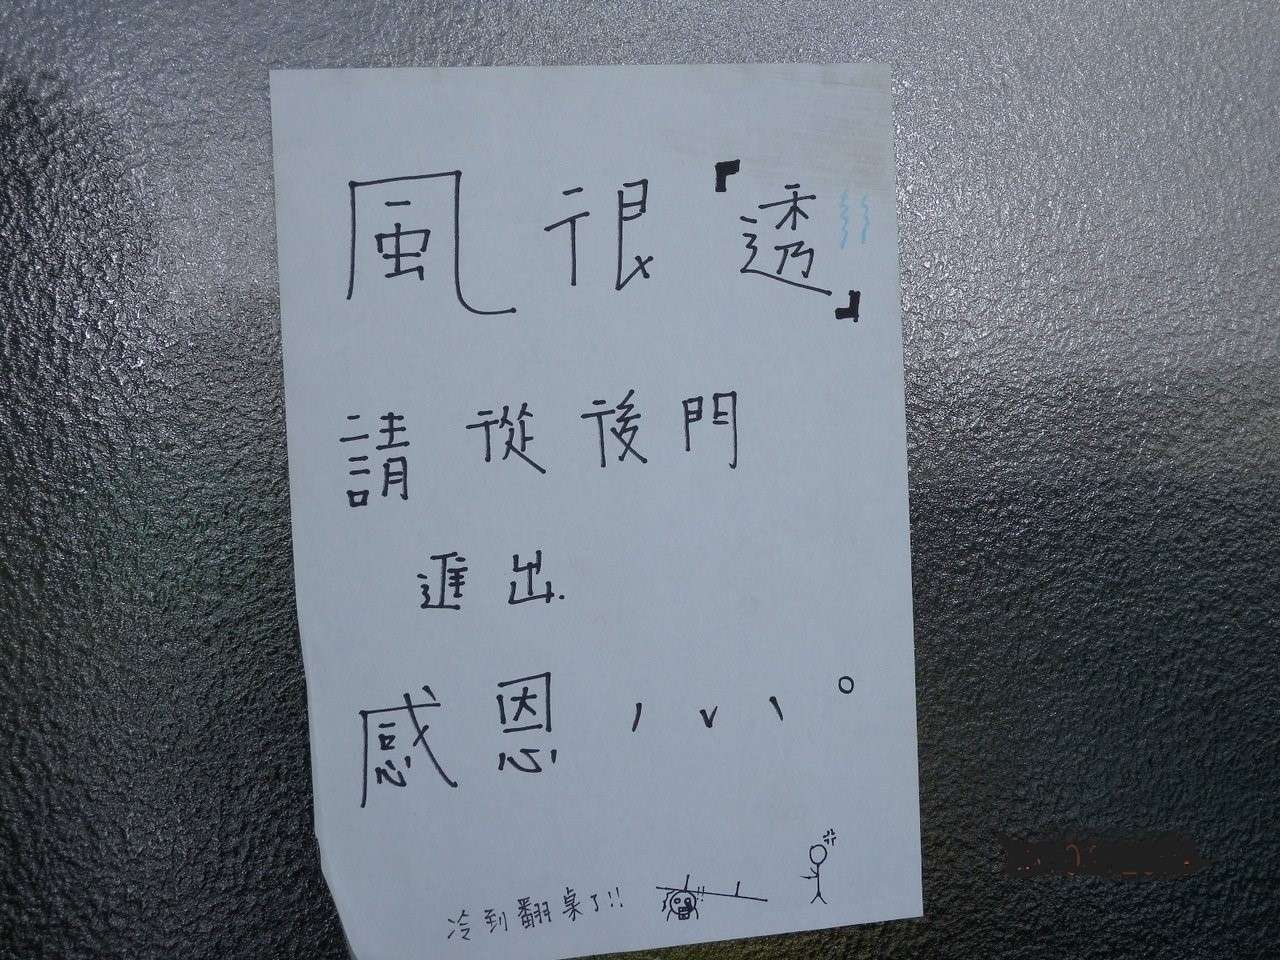 風很『透』
請從後門
進出.
感恩，、、。
冷到翻桌了!!